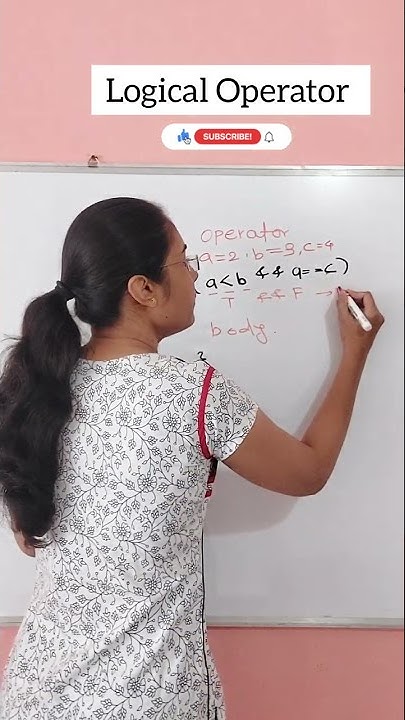 Logical Operator
SUBSCRIBE!
operator
a=2, b=3, c=4
(a<b && a==c)
T && F →
body.
2